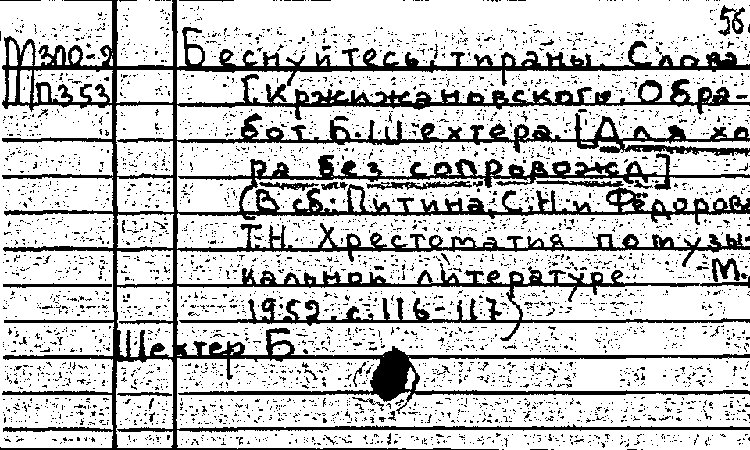 56.
М310-2 Беснуйтесь, тираны. Слова
П.353 Г. Кржижановского. Обра-
бот. Б. Шехтера. [Для хо
ра без сопровожд]
(В сб.: Питина, С.Н. и Фёдорова
Т.Н. Хрестоматия по музы-
кальной литературе М.,
1952. с. 116-117)
Шехтер Б.